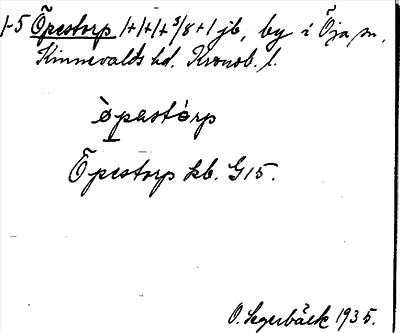 1-5 Öpestorp 1+1+1+3/8+1 jb, by i Öja sn,
Kinnevalds hd. Kronob. l.
òpastórp
Öpestorp kb. G15.
O. Segerbäck 1935.